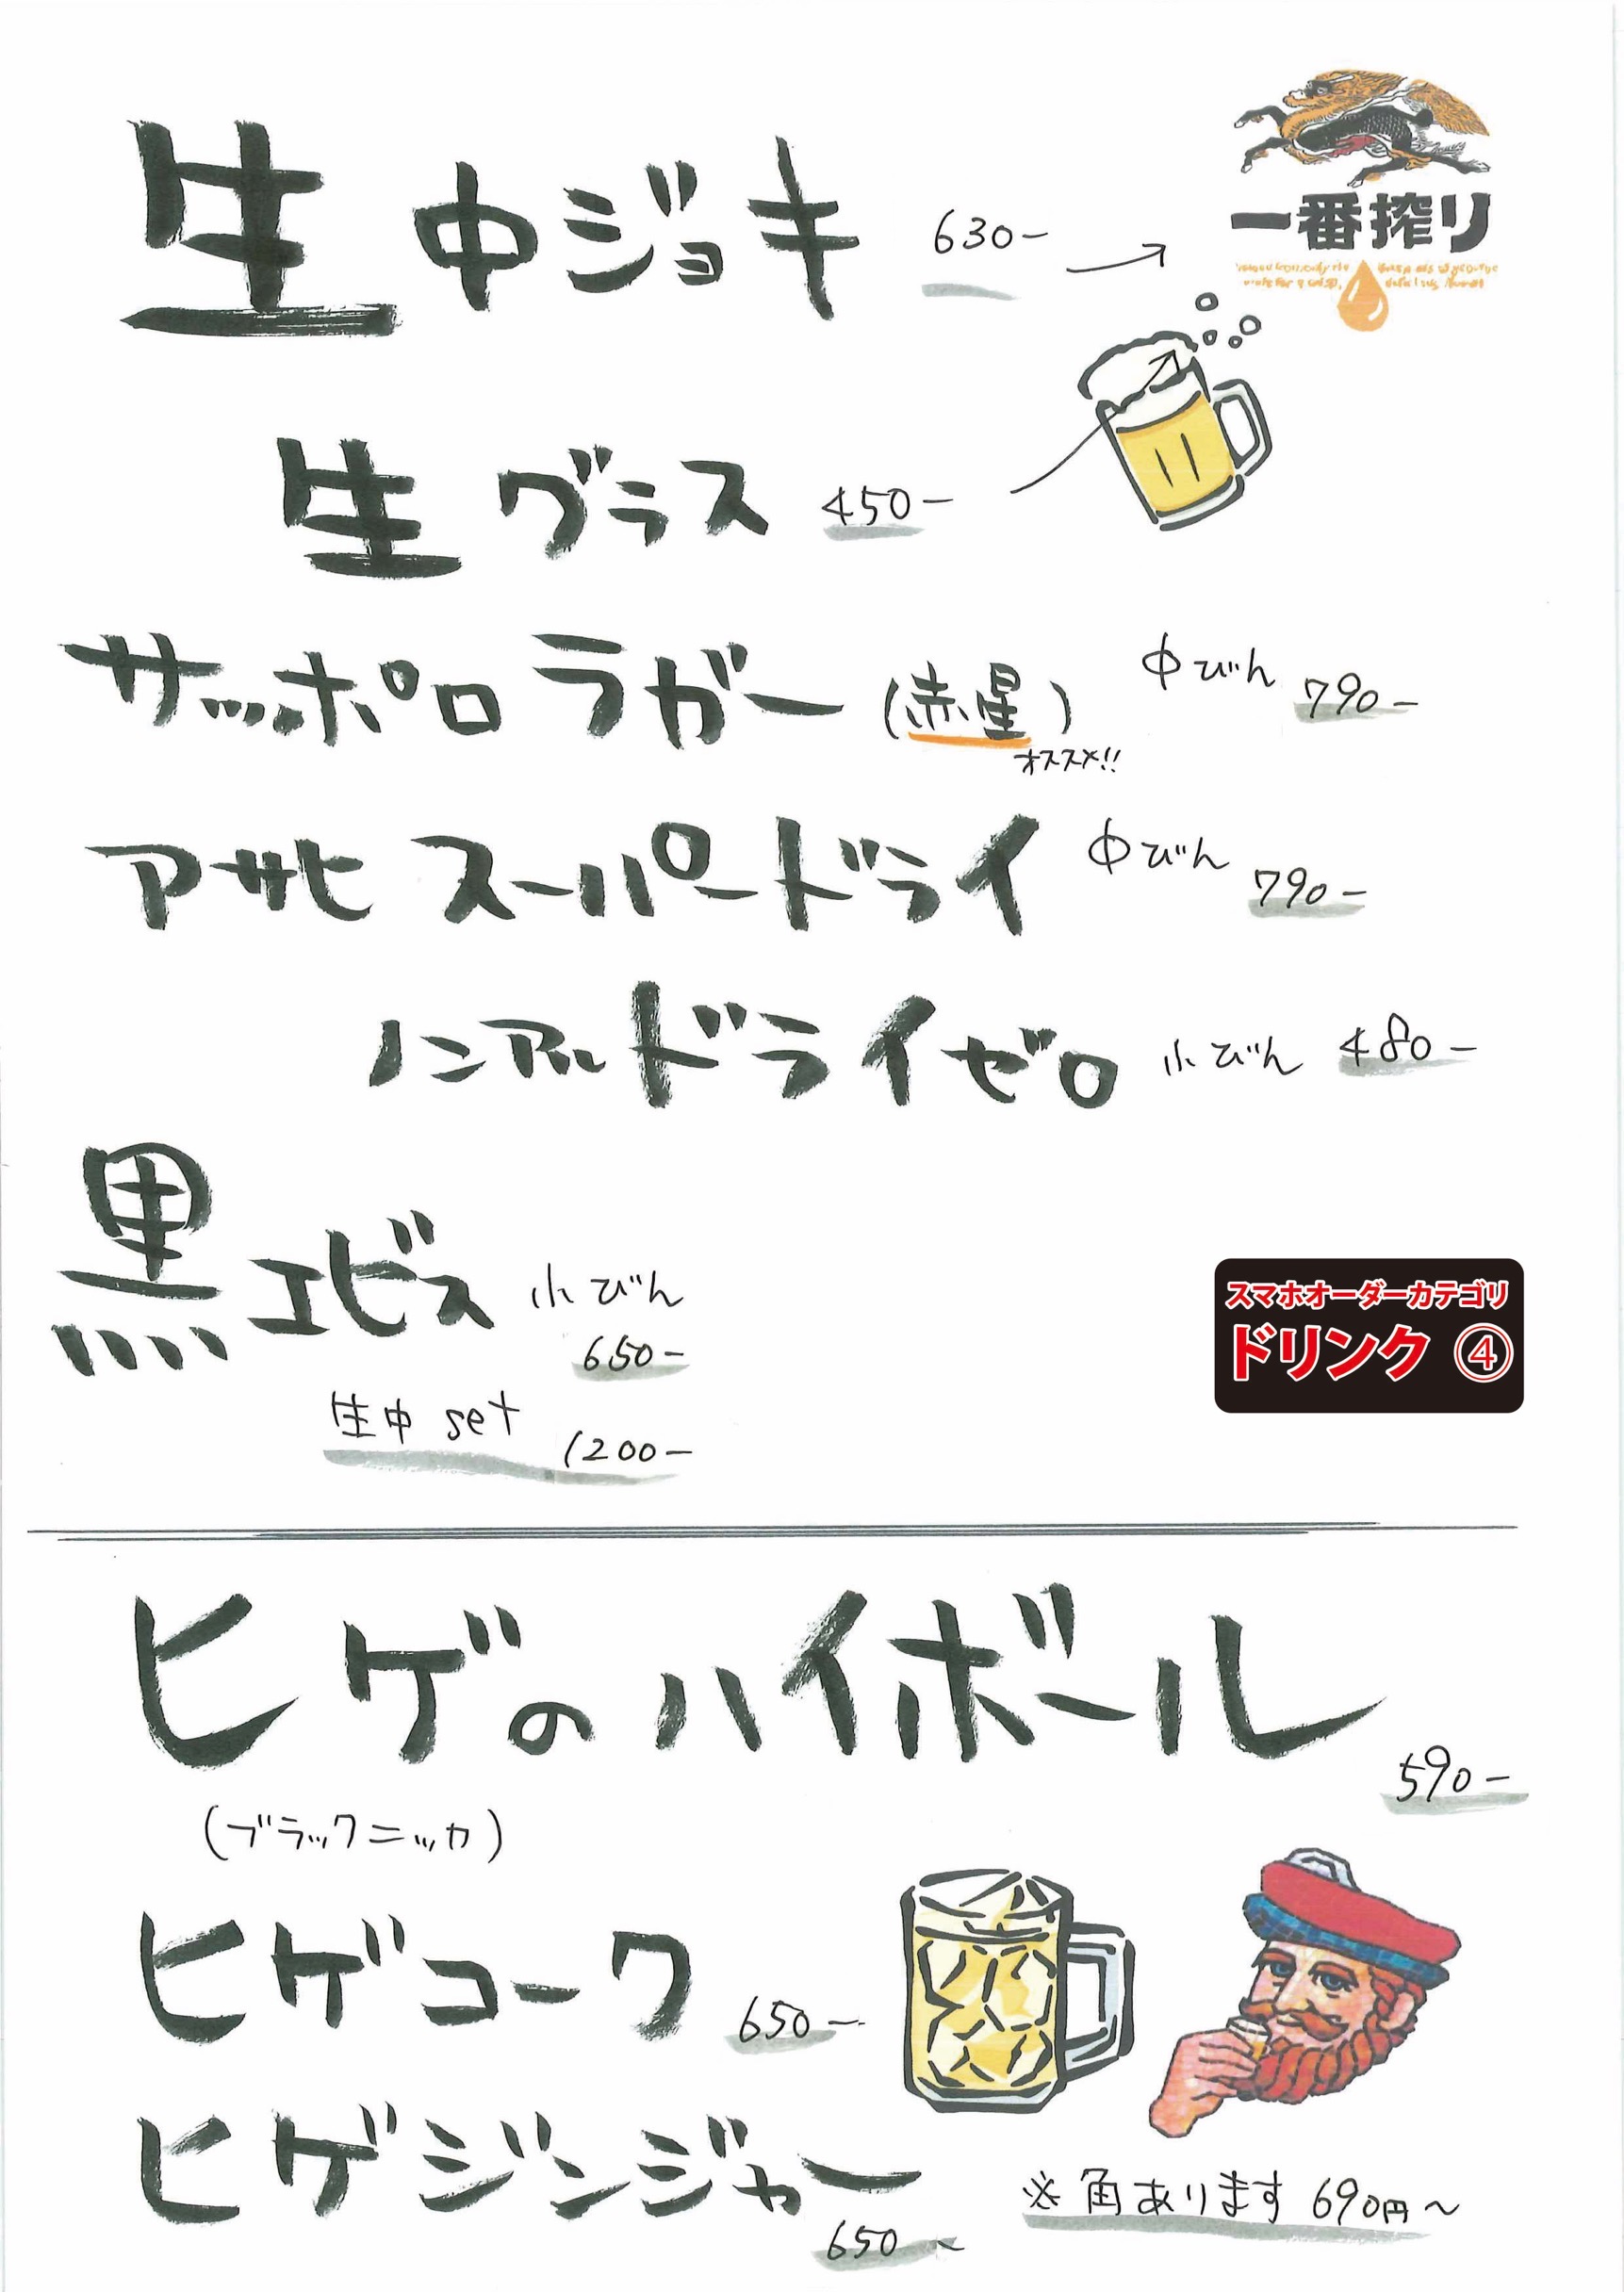 生 中ジョキ 630-
一番搾り
生 グラス 450-
サッポロ ラガー (赤星) 中びん 790-
オススメ!!
アサヒ スーパードライ 中びん 790-
ノンアル ドライゼロ 小びん 480-
黒エビス 小びん
650-
生中 set 1200-
スマホオーダーカテゴリ
ドリンク ④
ヒゲのハイボール
590-
(ブラックニッカ)
ヒゲコーク 650-
ヒゲジンジャー
650~
※角あります 690円~